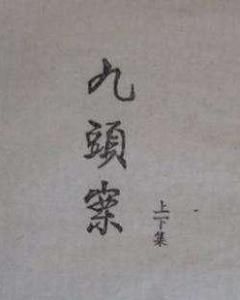 九頭案
上下集